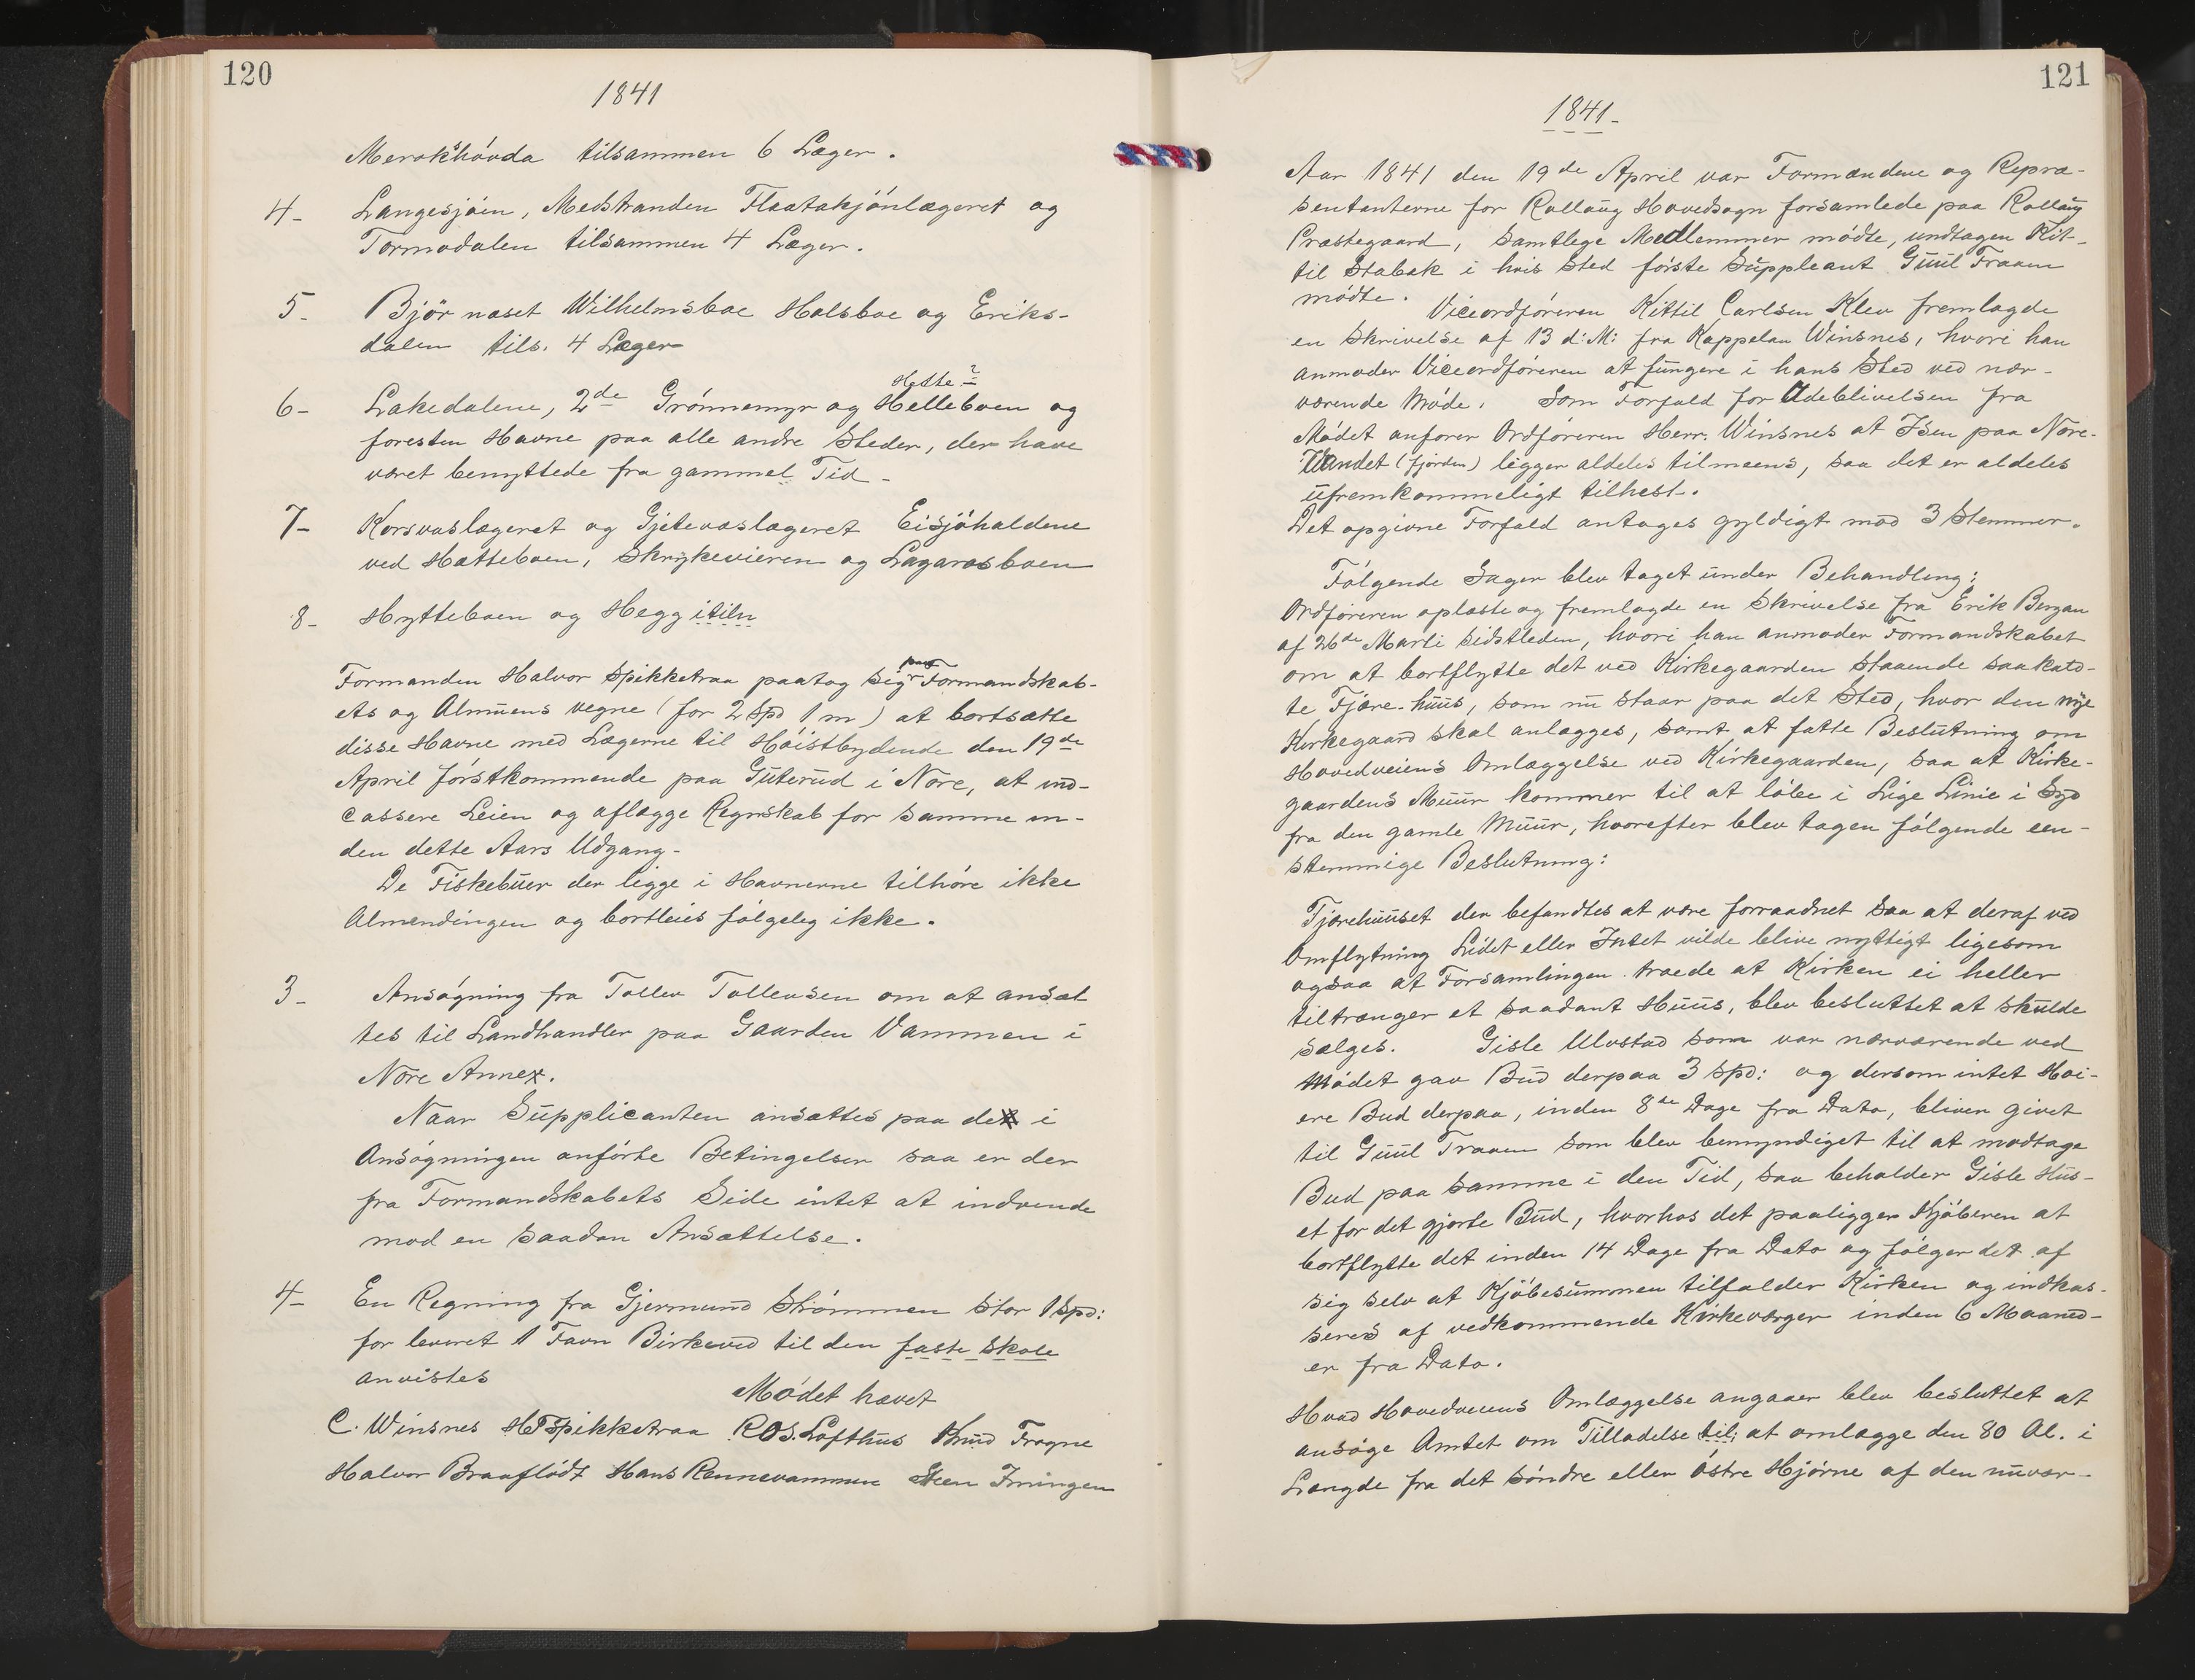 120
1841
Merakshövda tilsammen 6 Læger.
4- Langesjöen, Medstranden Flaatakjönlægeret og
Tormodalen tilsammen 4 Læger.
5- Björnæset Wilhelmsboe Halsboe og Eriks-
dalen tils. 4 Læger
Hette?
6- Lakedalene, 2de Grönnemyr og Helleboen og
foresten Havne paa alle andre Steder, der have
været benyttede fra gammel Tid-
7- Korsvaslægeret og Gjetevaslægeret Eisjöhaldene
ved Hatteboen, Skrykevieren og Lagarosboen
8- Hytteboen og Heggitiln
paa
Formanden Halvor Spikketraa paatog sig Formandskab-
ets og Almuens vegne (for 2 Spd 1 m) at bortsætte
disse Havne med Lægerne til Höistbydende den 19de
April förstkommende paa Guterud i Nore, at ind-
cassere Leien og aflægge Regnskab for samme in-
den dette Aars Udgang-
De Fiskebuer der ligge i Havnerne tilhöre ikke
Almendingen og bortleies fölgelig ikke.
3- Ansögning fra Tollev Tollevsen om at ansæt
tes til Landhandler paa Gaarden Vammen i
Nore Annex.
Naar Supplicanten ansættes paa de i
Ansögningen anförte Betingelser saa er der
fra Formandskabets Side intet at indvende
mod en saadan Ansættelse.
4- En Regning fra Gjermund Strömmen stor 1 Spd:
for leveret 1 Favn Birkeved til den faste Skole
anvistes
Mödet hævet
C. Winsnes HTSpikketraa ROS. Lofthus Knud Fragne
Halvor Braaflödt Hans Rennevammen Steen Imingen
121
1841-
Aar 1841 den 19de April var Formændene og Repræ-
sentanterne for Rollaug Hovedsogn forsamlede paa Rollaug
Præstegaard, samtlege Medlemmer mödte, undtagen Kit-
til Stabæk i hvis Sted förste Suppleant Guul Traaen
mödte. Viceordföreren Kittil Carlsen Klev fremlagde
en Skrivelse af 13 d: M: fra Kappelan Winsnes, hvori han
anmoder Viceordföreren at fungere i hans Sted ved nær-
værende Möde. Som Forfald for Udeblivelsen fra
Mödet anförer Ordföreren Herr. Winsnes at Isen paa Nore-
Vandet (fjorden) ligger aldeles tilmeens, saa det er aldeles
ufremkommeligt tilhest.
Det opgivne Forfald antages gyldigt mod 3 Stemmer.
Fölgende Sager blev taget under Behandling:
Ordföreren oplæste og fremlagde en Skrivelse fra Erik Bergan
af 26de Marti sidstleden, hvori han anmoder Formandskabet
om at bortflytte det ved Kirkegaarden staaende saakald-
te Tjære-huus, som nu staar paa det Sted, hvor den nye
Kirkegaard skal anlægges, samt at fatte Beslutning om
Hovedveiens Omlæggelse ved Kirkegaarden, saa at Kirke-
gaardens Muur kommer til at löbe i Lige Linie i Syd
fra den gamle Muur, hvorefter blev tagen fölgende een-
stemmige Beslutning:
Tjærehuuset der befandtes at være forraadnet saa at deraf ved
Omflytning Lidet eller Intet vilde blive nyttigt ligesom
ogsaa at Forsamlingen troede at Kirken ei heller
tiltrænger et saadant Huus, blev besluttet at skulde
sælges. Gisle Ulvstad som var nærværende ved
Mödet gav Bud derpaa 3 Spd: og dersom intet Höi-
ere Bud derpaa, inden 8de Dage fra Dato, bliver givet
til Guul Traaen som blev bemyndiget til at modtage
Bud paa samme i den Tid, saa beholder Gisle Hus-
et for det gjorte Bud, hvorhos det paaligger Kjöberen at
bortflytte det inden 14 Dage fra Dato og fölger det af
sig selv at Kjöbesummen tilfalder Kirken og indkas-
seres af vedkommende Kirkeværger inden 6 Maaned-
er fra Dato.
Hvad Hovedveiens Omlæggelse angaaer blev besluttet at
ansöge Amtet om Tilladelse til, at omlægge den 80 Al. i
Længde fra det Söndre eller Östre Hjörne af den nuvær-